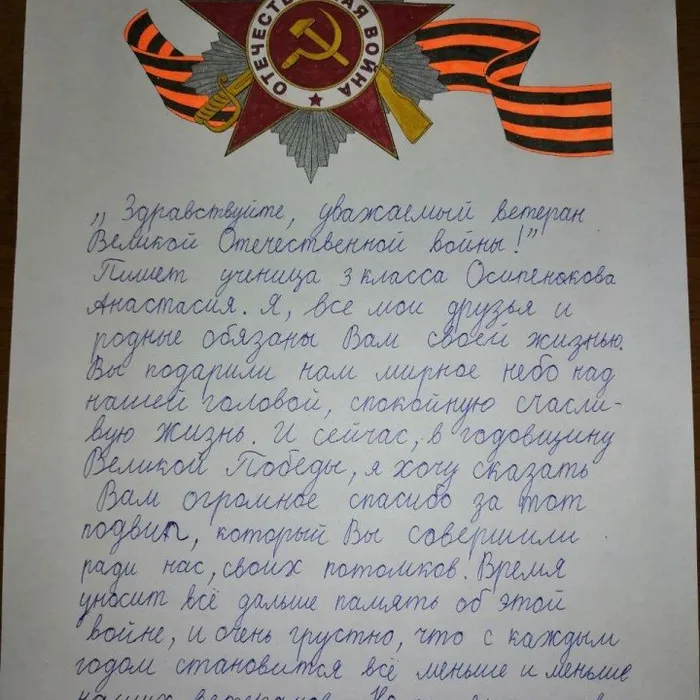 ОТЕЧЕСТВЕННАЯ ВОЙНА
„Здравствуйте, уважаемый ветеран
Великой Отечественной войны!"
Пишет ученица 3 класса Осипенокова
Анастасия. Я, все мои друзья и
родные обязаны Вам своей жизнью.
Вы подарили нам мирное небо над
нашей головой, спокойную счасли-
вую жизнь. И сейчас, в годовщину
Великой Победы, я хочу сказать
Вам огромное спасибо за тот
подвиг, который Вы совершили
ради нас, своих потомков. Время
уносит всё дальше память об этой
войне, и очень грустно, что с каждым
годом становится всё меньше и меньше
наших ветеранов. Но